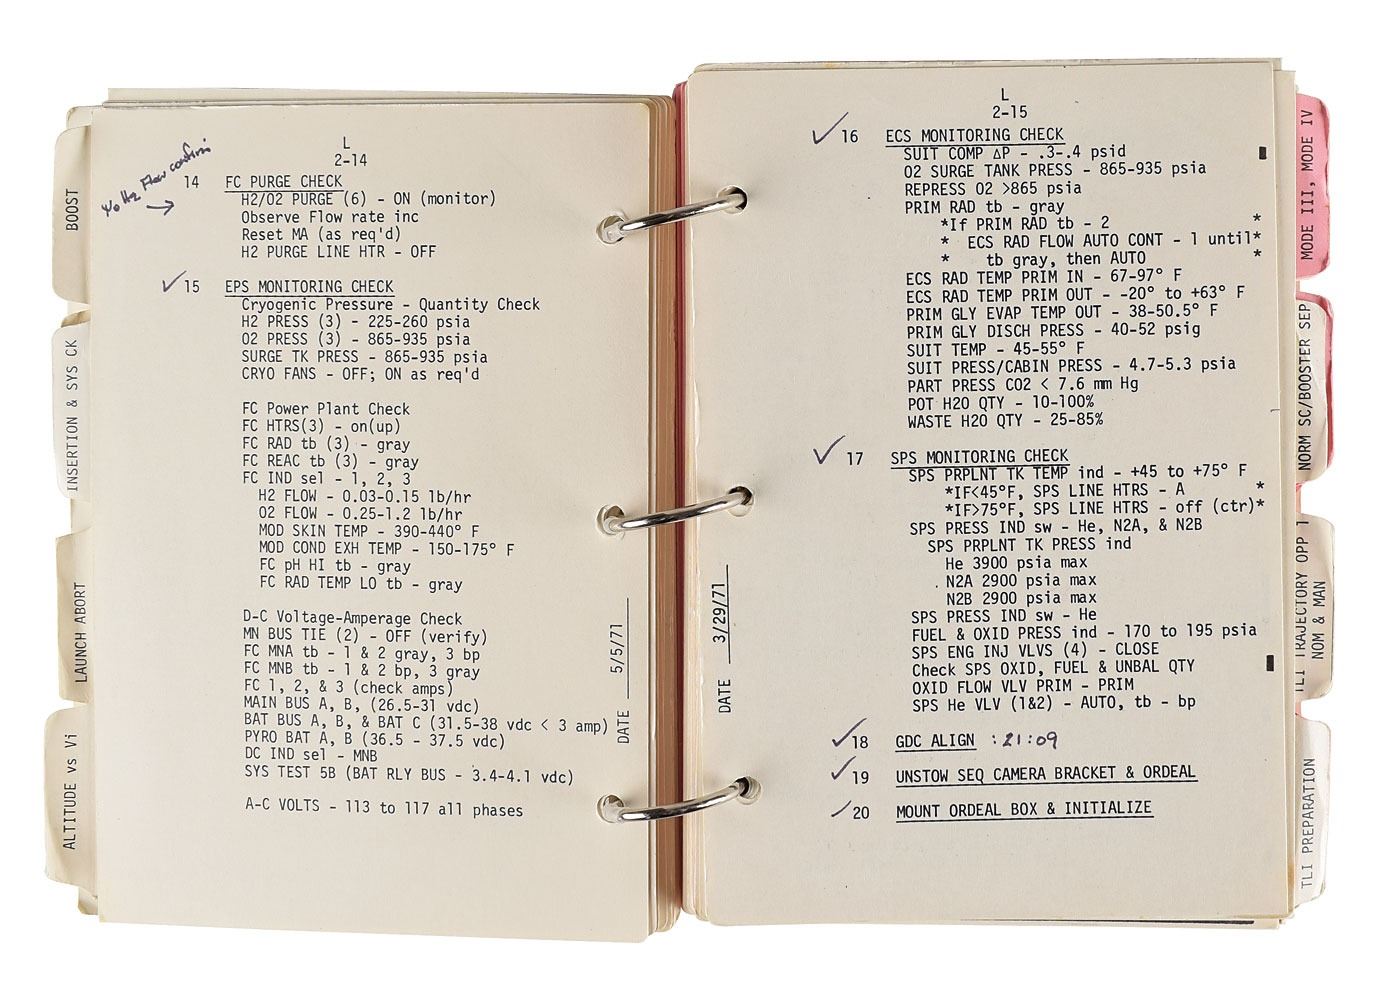 BOOST
INSERTION & SYS CK
LAUNCH ABORT
ALTITUDE vs Vi
L
2-14
H2 Flow confirm
14 FC PURGE CHECK
H2/O2 PURGE (6) - ON (monitor)
Observe Flow rate inc
Reset MA (as req'd)
H2 PURGE LINE HTR - OFF
✓15 EPS MONITORING CHECK
Cryogenic Pressure - Quantity Check
H2 PRESS (3) - 225-260 psia
O2 PRESS (3) - 865-935 psia
SURGE TK PRESS - 865-935 psia
CRYO FANS - OFF; ON as req'd
FC Power Plant Check
FC HTRS(3) - on(up)
FC RAD tb (3) - gray
FC REAC tb (3) - gray
FC IND sel - 1, 2, 3
H2 FLOW - 0.03-0.15 lb/hr
O2 FLOW - 0.25-1.2 lb/hr
MOD SKIN TEMP - 390-440° F
MOD COND EXH TEMP - 150-175° F
FC pH HI tb - gray
FC RAD TEMP LO tb - gray
D-C Voltage-Amperage Check
MN BUS TIE (2) - OFF (verify)
FC MNA tb - 1 & 2 gray, 3 bp
FC MNB tb - 1 & 2 bp, 3 gray
FC 1, 2, & 3 (check amps)
MAIN BUS A, B, (26.5-31 vdc)
BAT BUS A, B, & BAT C (31.5-38 vdc < 3 amp)
PYRO BAT A, B (36.5 - 37.5 vdc)
DC IND sel - MNB
SYS TEST 5B (BAT RLY BUS - 3.4-4.1 vdc)
A-C VOLTS - 113 to 117 all phases
DATE 5/5/71
L
2-15
✓ 16 ECS MONITORING CHECK
SUIT COMP ΔP - .3-.4 psid
O2 SURGE TANK PRESS - 865-935 psia
REPRESS O2 >865 psia
PRIM RAD tb - gray
*If PRIM RAD tb - 2 *
* ECS RAD FLOW AUTO CONT - 1 until*
* tb gray, then AUTO *
ECS RAD TEMP PRIM IN - 67-97° F
ECS RAD TEMP PRIM OUT - -20° to +63° F
PRIM GLY EVAP TEMP OUT - 38-50.5° F
PRIM GLY DISCH PRESS - 40-52 psig
SUIT TEMP - 45-55° F
SUIT PRESS/CABIN PRESS - 4.7-5.3 psia
PART PRESS CO2 < 7.6 mm Hg
POT H2O QTY - 10-100%
WASTE H2O QTY - 25-85%
✓ 17 SPS MONITORING CHECK
SPS PRPLNT TK TEMP ind - +45 to +75° F
*IF<45°F, SPS LINE HTRS - A *
*IF>75°F, SPS LINE HTRS - off (ctr)*
SPS PRESS IND sw - He, N2A, & N2B
SPS PRPLNT TK PRESS ind
He 3900 psia max
N2A 2900 psia max
N2B 2900 psia max
SPS PRESS IND sw - He
FUEL & OXID PRESS ind - 170 to 195 psia
SPS ENG INJ VLVS (4) - CLOSE
Check SPS OXID, FUEL & UNBAL QTY
OXID FLOW VLV PRIM - PRIM
SPS He VLV (1&2) - AUTO, tb - bp
✓18 GDC ALIGN :21:09
✓19 UNSTOW SEQ CAMERA BRACKET & ORDEAL
✓20 MOUNT ORDEAL BOX & INITIALIZE
DATE 3/29/71
MODE III, MODE IV
NORM SC/BOOSTER SEP
TLI TRAJECTORY OPP 1
NOM & MAN
TLI PREPARATION